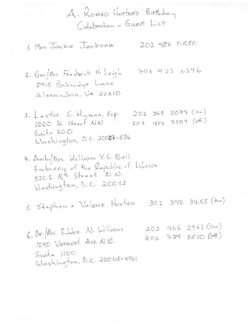 A. Romeo Horton's Birthday
Celebration - Guest List
1. Mrs Jackie Jackson 202 986 0550
2. Gen/Mrs. Frederick H Leigh 703 922 0296
Lane
Alexandria, VA 22310
3. Lester S. Hyman, Esq 202 363
Suite 200
Washington, D.C.
4. Amb/Mrs. William V.S. Bull
Embassy of the Republic of Liberia
5201 16th Street N.W.
Washington, D.C. 20011
5. Stephen & Valerie Horton 301 390 3655
6. Dr/Mrs. Edden N. Williams 202 966 2961
1090 Vermont Ave NW 202 789 3510
Suite 1100
Washington, D.C. 20005-4961